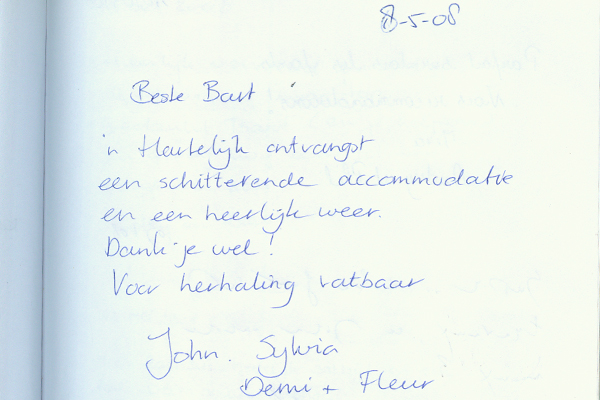 8-5-08
Beste Bart
'n Hartelijk ontvangst
een schitterende accommodatie
en een heerlijk weer.
Dank je wel!
Voor herhaling vatbaar
John. Sylvia
Demi + Fleur